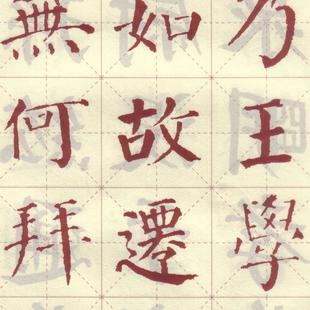 王學
如故遷
無何拜